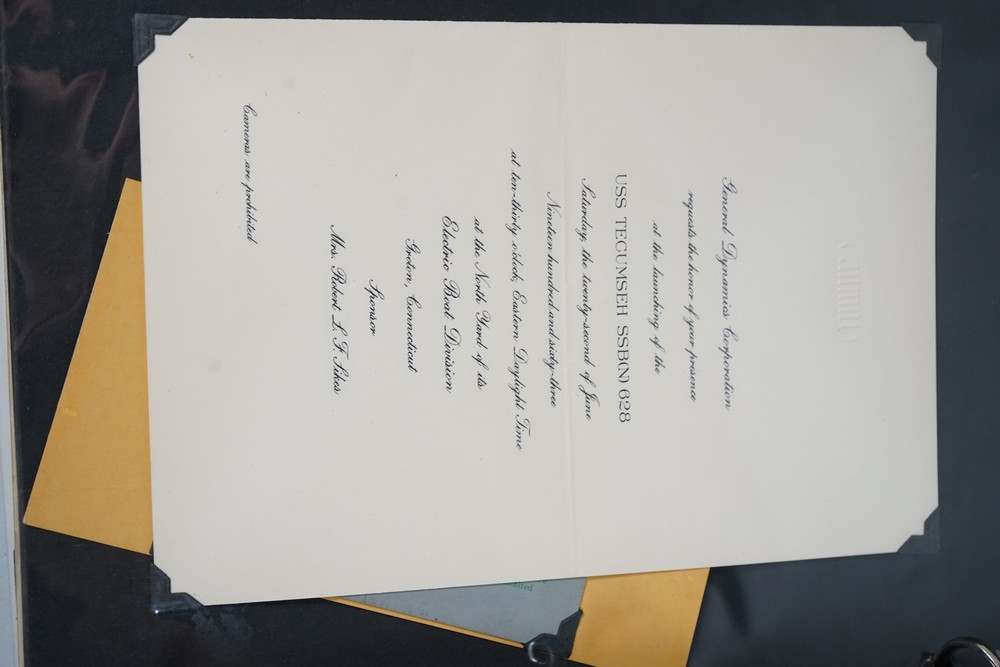 General Dynamics Corporation
requests the honor of your presence
at the launching of the
USS TECUMSEH SSB(N) 628
Saturday, the twenty-second of June
Nineteen hundred and sixty-three
at ten-thirty o'clock, Eastern Daylight Time
at the North Yard of its
Electric Boat Division
Groton, Connecticut
Sponsor
Mrs. Robert L. F. Sikes
Cameras are prohibited